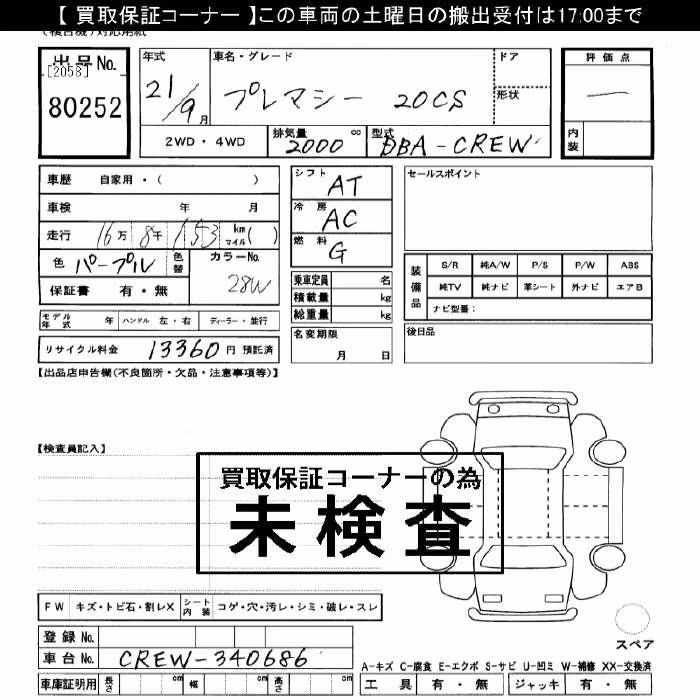 【 買取保証コーナー 】この車両の土曜日の搬出受付は17:00まで
出品No.
[2058]
80252
年式
21/9月
車名・グレード
プレマシー 20CS
ドア
形状
2WD・4WD
排気量 cc
2000
型式
DBA-CREW
評価点
一
内装
車歴 自家用・( )
車検 年 月
走行 16万8千153 km マイル( )
色 パープル 色替
カラーNo.
28W
保証書 有・無
シフト
AT
冷房
AC
燃料
G
乗車定員 名
積載量 kg
総重量 kg
名変期限
月 日
セールスポイント
装備品
S/R 純A/W P/S P/W ABS
純TV 純ナビ 革シート 外ナビ エアB
ナビ型番：
後日品
モデル年式 年 ハンドル 左・右 ディーラー・並行
リサイクル料金 13360円 預託済
【出品店申告欄(不良箇所・欠品・注意事項等)】
【検査員記入】
買取保証コーナーの為
未検査
FW キズ・トビ石・割レX シート内装 コゲ・穴・汚レ・シミ・破レ・スレ
登録No.
車台No. CREW-340686
車庫証明用 長さ cm 幅 cm 高さ cm
スペア
A-キズ C-腐食 E-エクボ S-サビ U-凹ミ W-補修 XX-交換済
工具 有・無 ジャッキ 有・無